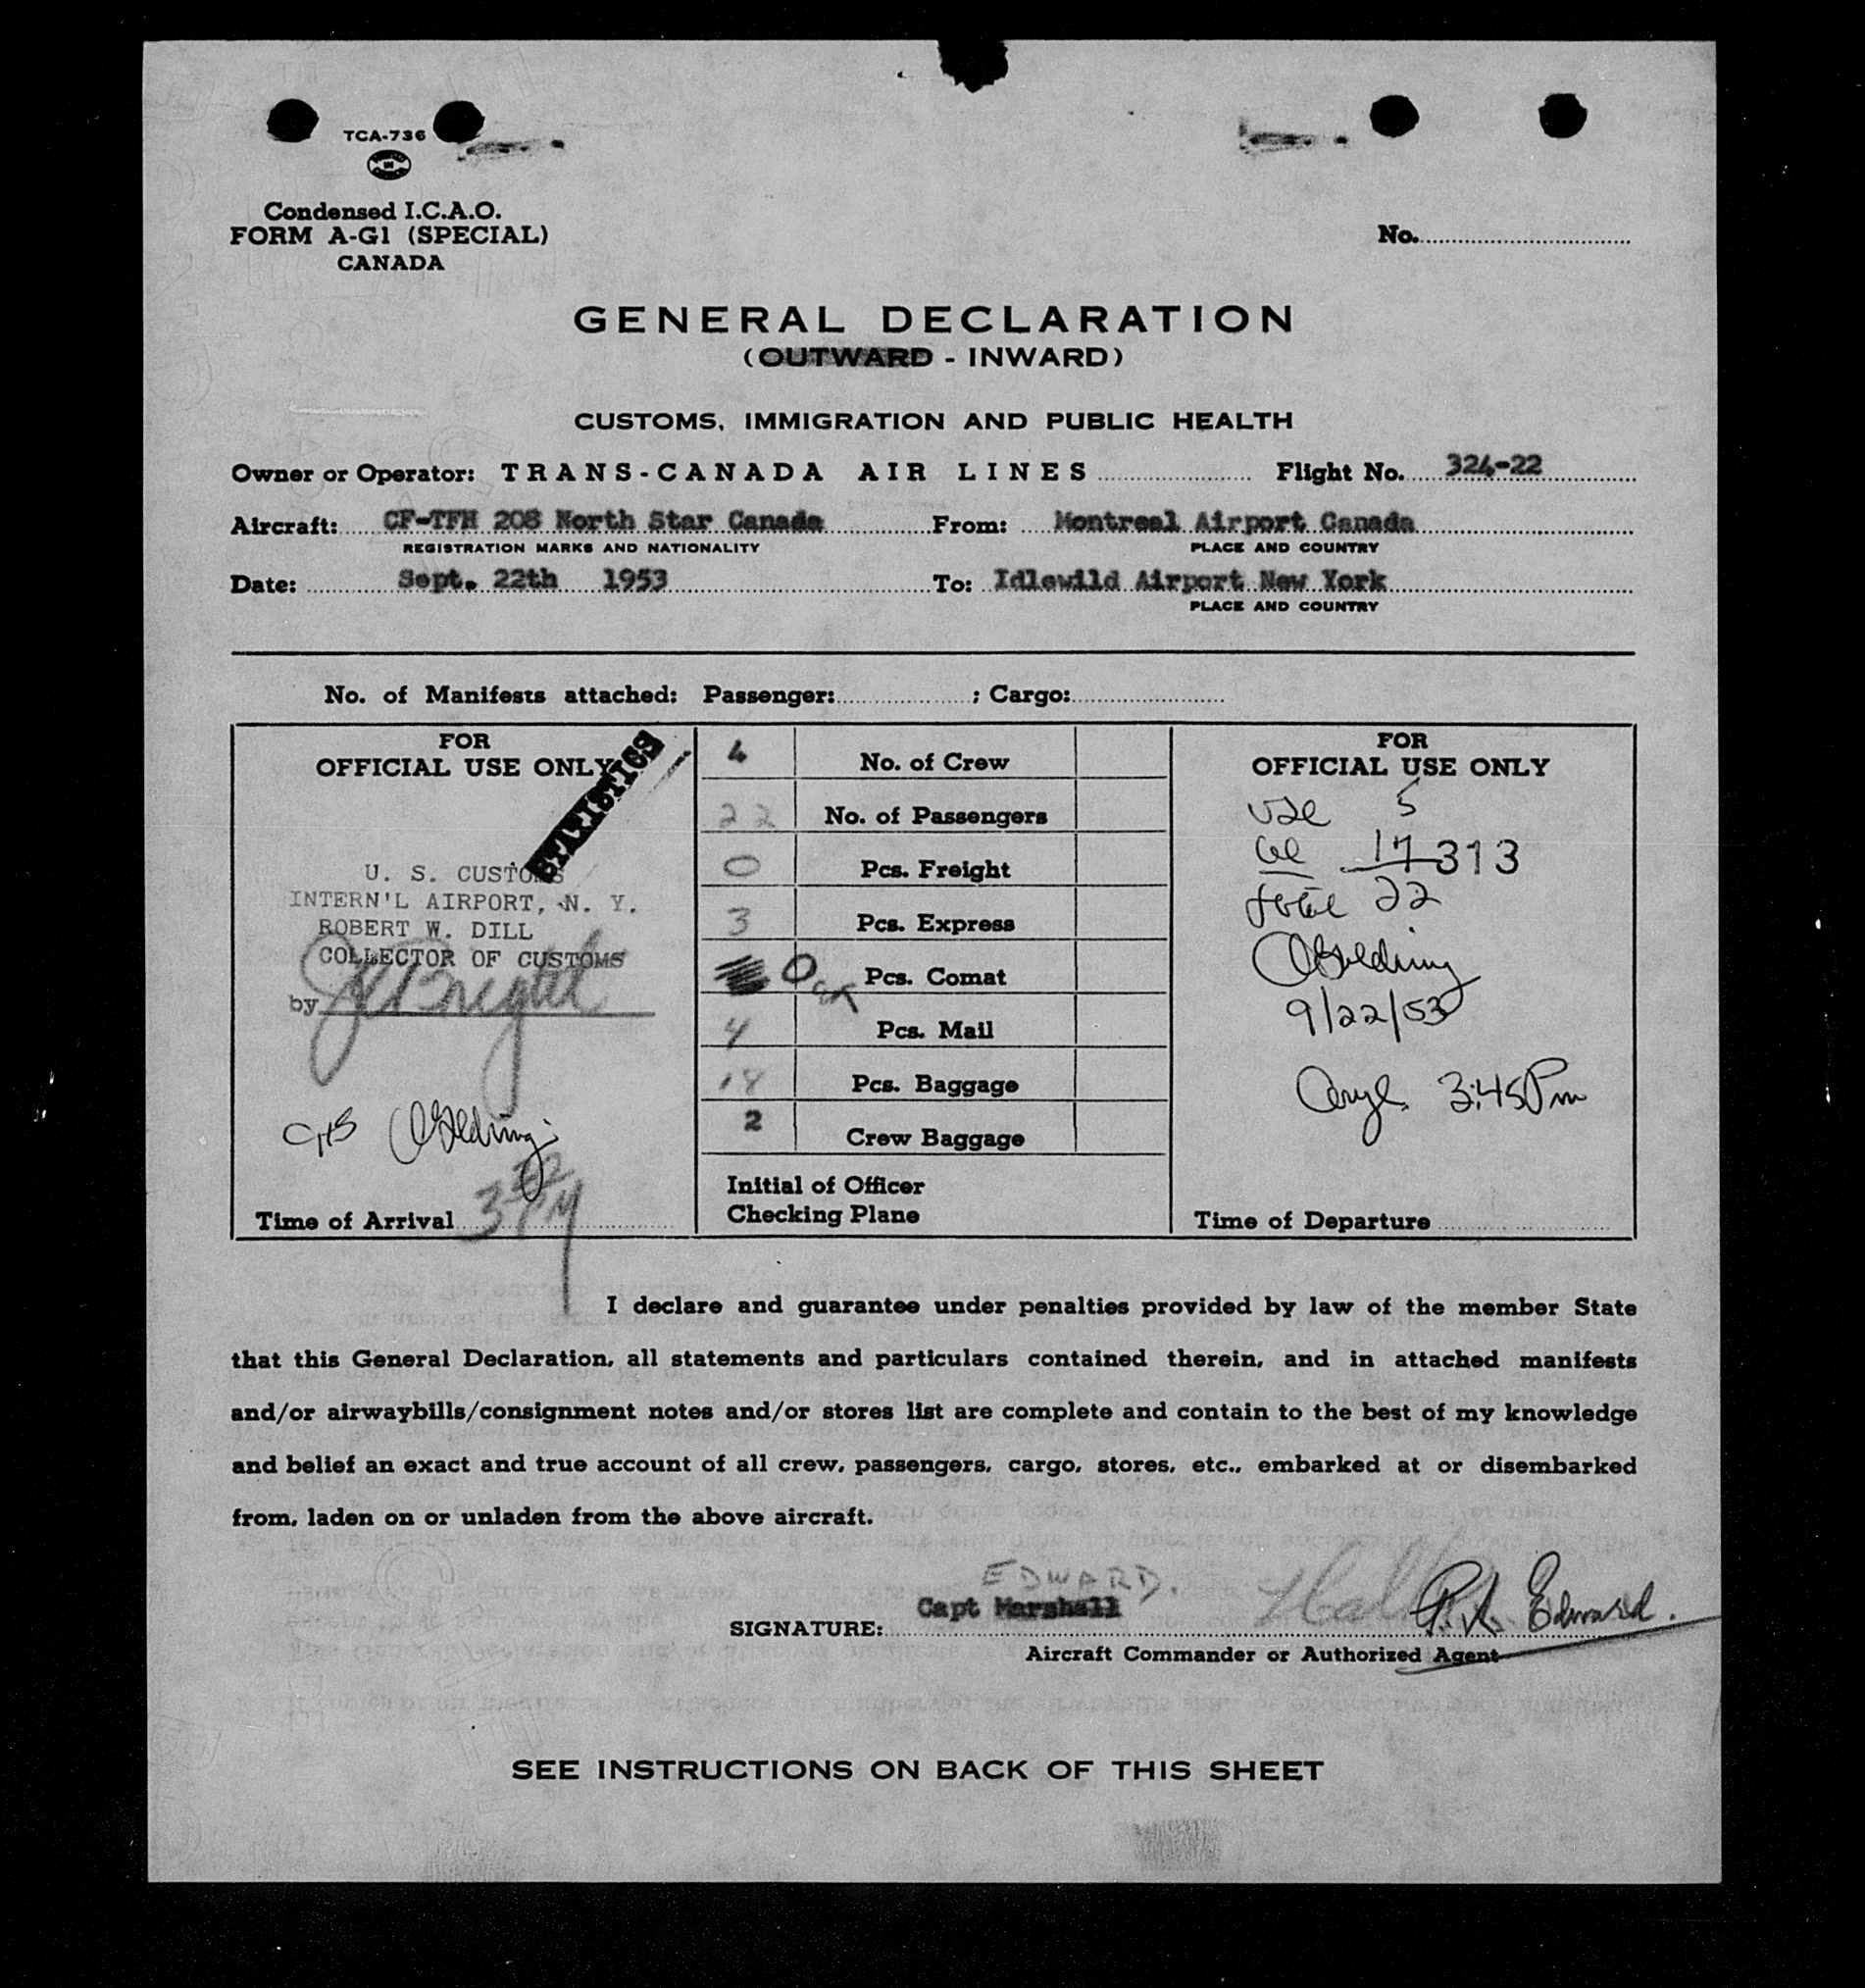 TCA-736
Condensed I.C.A.O.
FORM A-G1 (SPECIAL)
CANADA
No.
GENERAL DECLARATION
(OUTWARD - INWARD)
CUSTOMS, IMMIGRATION AND PUBLIC HEALTH
Owner or Operator: TRANS-CANADA AIR LINES Flight No. 324-22
Aircraft: CF-TFH 208 North Star Canada From: Montreal Airport Canada
REGISTRATION MARKS AND NATIONALITY PLACE AND COUNTRY
Date: Sept. 22th 1953 To: Idlewild Airport New York
PLACE AND COUNTRY
No. of Manifests attached: Passenger: ; Cargo:
FOR
OFFICIAL USE ONLY
STATISTICS
U. S. CUSTOMS
INTERN'L AIRPORT, N. Y.
ROBERT W. DILL
COLLECTOR OF CUSTOMS
by
Time of Arrival 3 32 PM
4 No. of Crew
22 No. of Passengers
0 Pcs. Freight
3 Pcs. Express
0 Pcs. Comat
4 Pcs. Mail
18 Pcs. Baggage
2 Crew Baggage
Initial of Officer
Checking Plane
FOR
OFFICIAL USE ONLY
5
17 313
total 22
9/22/53
3:45 Pm
Time of Departure
I declare and guarantee under penalties provided by law of the member State
that this General Declaration, all statements and particulars contained therein, and in attached manifests
and/or airwaybills/consignment notes and/or stores list are complete and contain to the best of my knowledge
and belief an exact and true account of all crew, passengers, cargo, stores, etc., embarked at or disembarked
from, laden on or unladen from the above aircraft.
EDWARD.
SIGNATURE: Capt Marshall Hall P. A. Edward.
Aircraft Commander or Authorized Agent
SEE INSTRUCTIONS ON BACK OF THIS SHEET